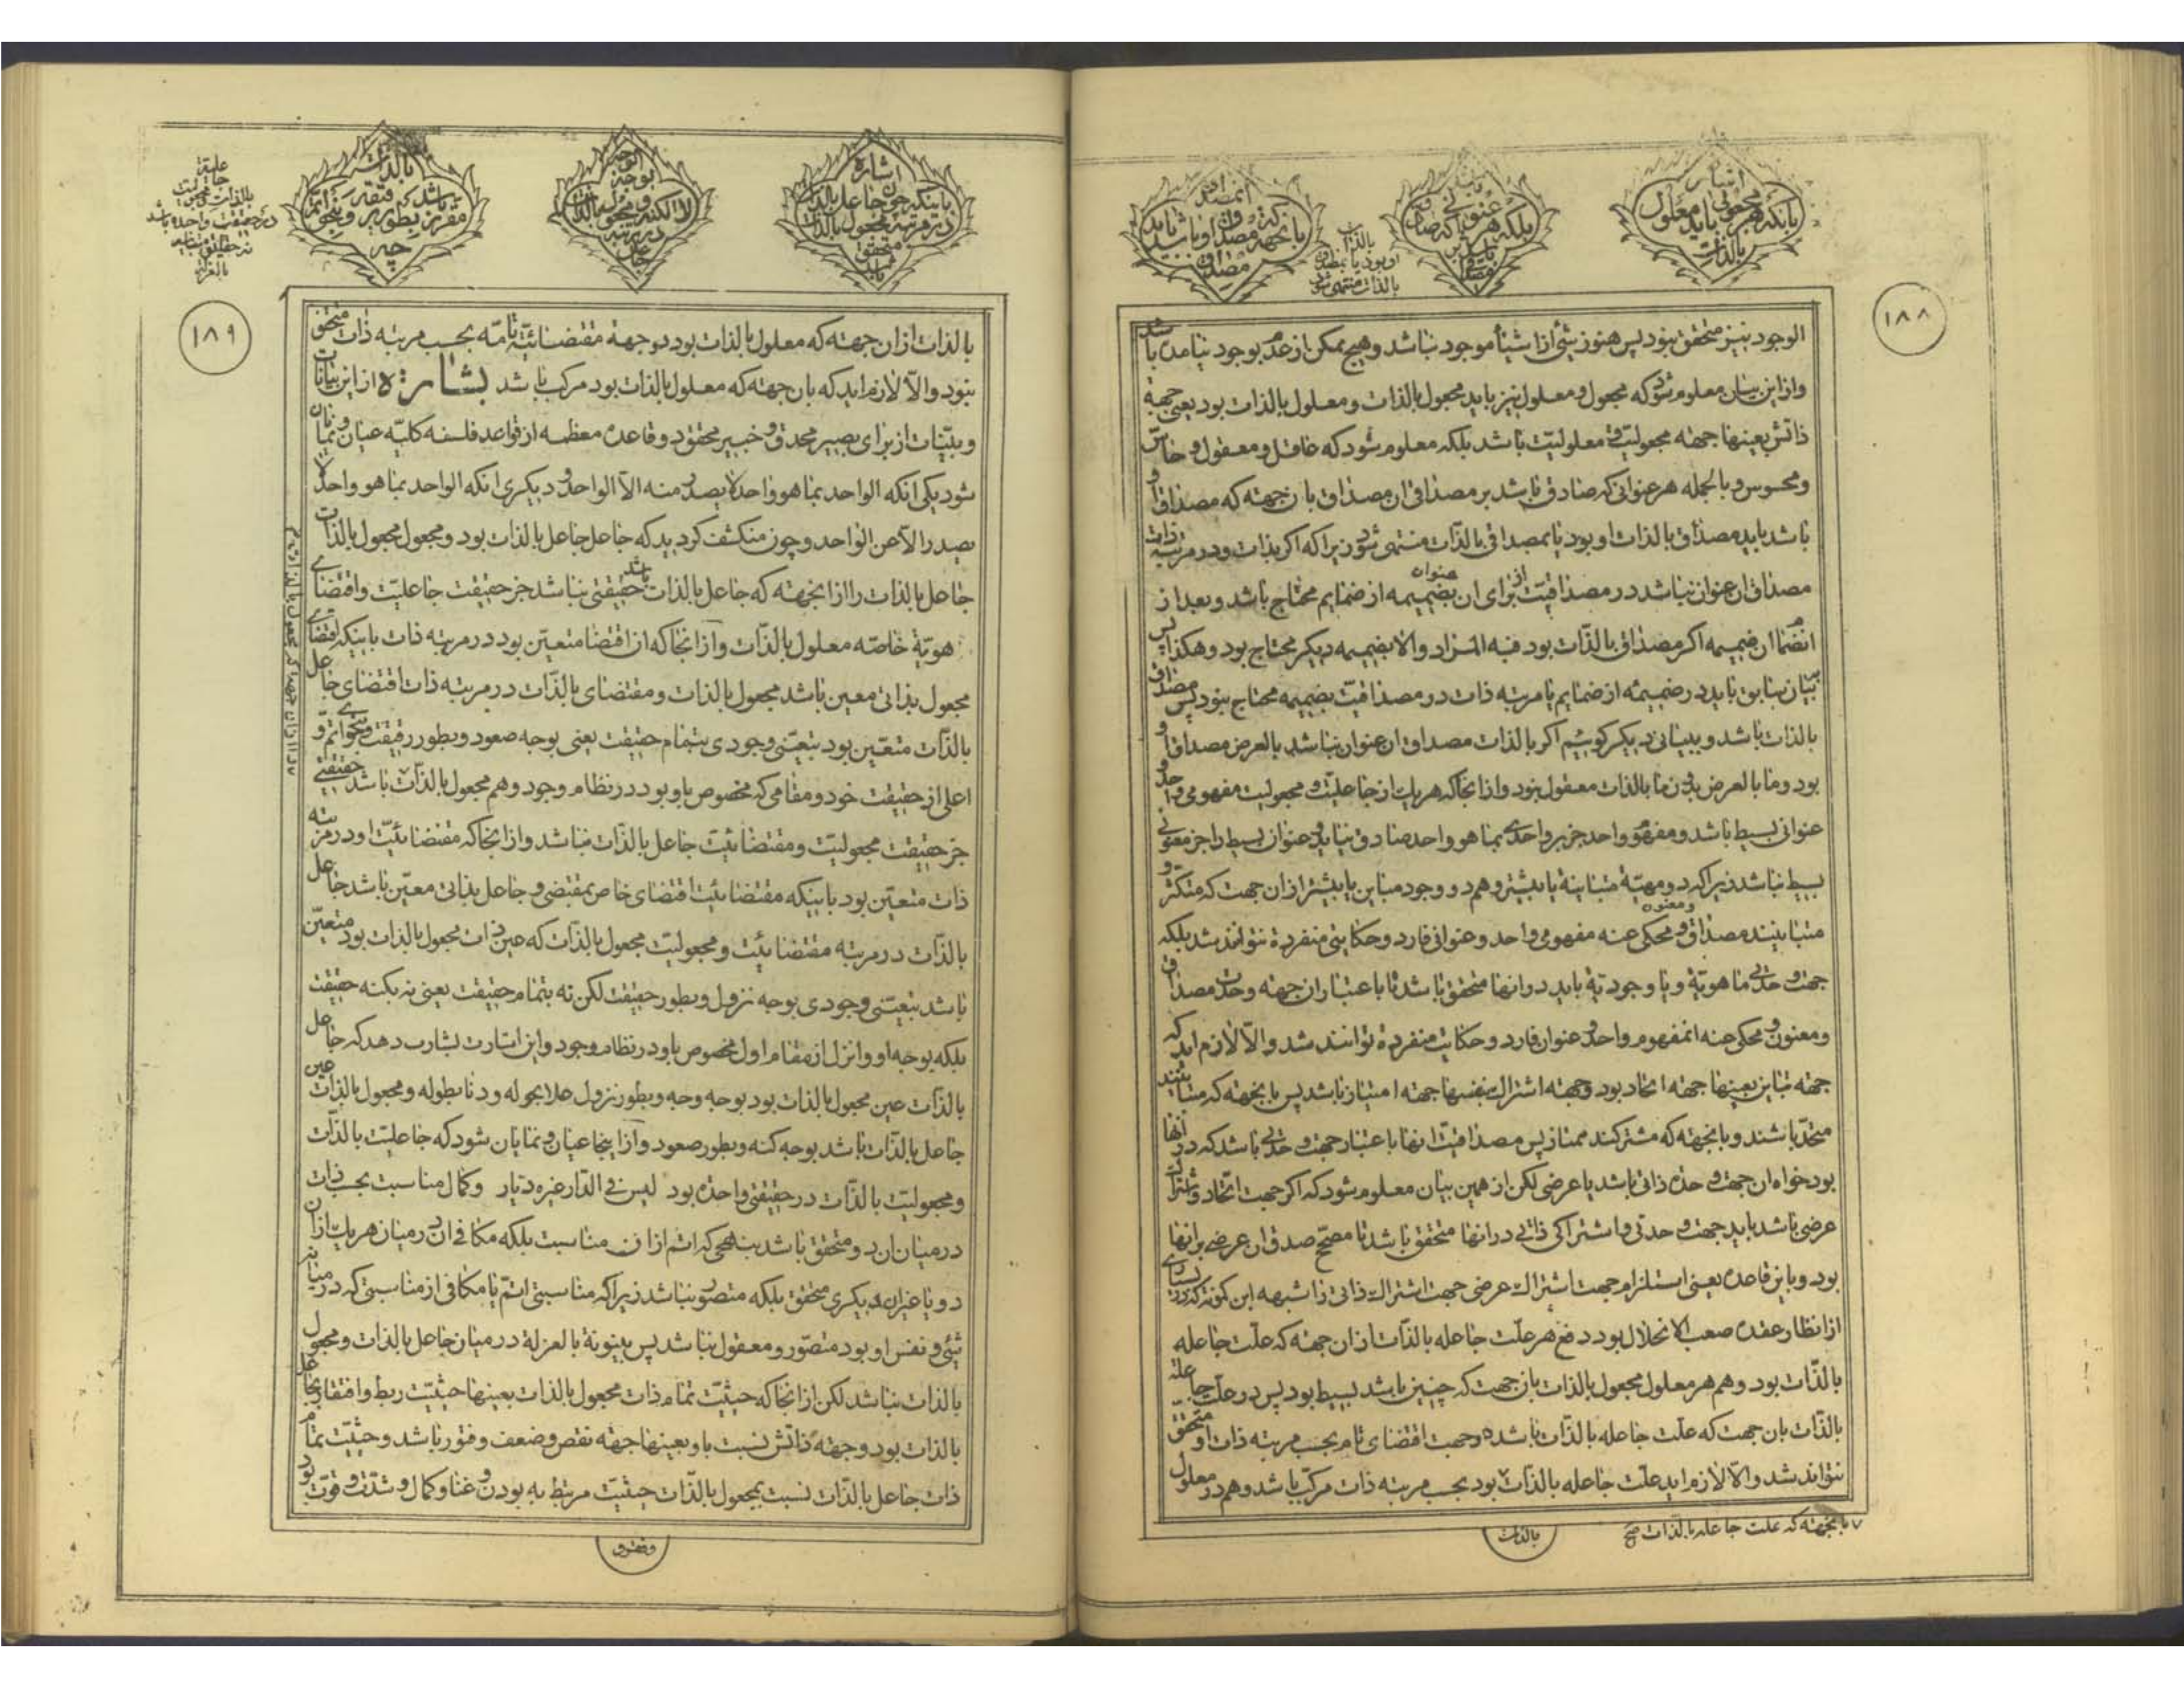 اشاره
بانکه هر مجعولی باید معلول
بالذات
بلکه هر عنوانی که صادق
بالذات
او بود یا بمصداق
بالذات منتهی شود
که مصداق او باشد باید
بانجهة
مصداق
۱۸۸
الوجود نیز متحقق نبود پس هنوز شیئ از اشیا موجود نباشد و هیچ ممکن از عدم بوجود نیامده باشد
و از این بیان معلوم شود که مجعول و معلول نیز باید مجعول بالذات و معلول بالذات بود یعنی جهة
ذاتش بعینها جهته مجعولیت و معلولیت باشد بلکه معلوم شود که عاقل و معقول و حاس
و محسوس و بالجمله هر عنوانی که صادق باشد بر مصداقی ان مصداق بان جهته که مصداق او
باشد باید مصداق بالذات او بود یا بمصداقی بالذات منتهی شود زیرا که اگر بذات و در مرتبه ذات
مصداق ان عنوان نباشد در مصداقیت از برای ان عنوان بضمیمه از ضمایم محتاج باشد و بعد از
انضمام ان ضمیمه اگر مصداق بالذات بود فبه المراد والا بضمیمه دیگر محتاج بود و هکذا پس
بیان سابق باید در ضمیمه از ضمایم یا مرتبه ذات در مصداقیت بضمیمه محتاج نبود پس مصداق
بالذات باشد و ببیانی دیگر گوئیم اگر بالذات مصداق ان عنوان نباشد بالعرض مصداق او
بود و ما بالعرض بدون ما بالذات معقول نبود و از انجا که هر یک از جاعلیت و مجعولیت مفهومی واحد و
عنوانی بسیط باشد و مفهوم واحد جز بر واحدی بما هو واحد صادق نیاید و عنوان بسیط را جز معنونی
بسیط نباشد زیرا که دو مهیة متباینة یا بیشتر و هم دو وجود مباین یا بیشتر از ان جهت که متکثر و
متباینند مصداق و معنون و محکی عنه مفهومی واحد و عنوانی فارد و حکایتی منفردة نتوانند شد بلکه
جهت وحدتی ماهویة و یا وجودیة باید در انها متحقق باشد تا باعتبار ان جهته وحدت مصداق
و معنون و محکی عنه انمفهوم واحد و عنوان فارد و حکایت منفردة توانند شد والا لازم اید که
جهته تباین بعینها جهته اتحاد بود و جهته اشتراک بنفسها جهته امتیاز باشد پس بانجهته که متباینند
متحد باشند و بانجهته که مشترکند ممتاز پس مصداقیت انها باعتبار جهت وحدتی باشد که در انها
بود خواه ان جهت وحدة ذاتی باشد یا عرضی لکن از همین بیان معلوم شود که اگر جهت اتحاد و اشتراک
عرضی باشد باید جهت وحدتی و اشتراکی ذاتی در انها متحقق باشد تا مصحح صدق ان عرضی بر انها
بود و باین قاعده یعنی استلزام جهت اشتراک عرضی جهت اشتراک ذاتی را شبهه ابن کمونه که در بسیاری
از انظار عقده صعب الانحلال بود دفع هر علت جاعله بالذات از ان جهته که علت جاعله
بالذات بود و هم هر معلول مجعول بالذات بان جهت که چنین باشد بسیط بود پس در علت جاعله
بالذات بان جهت که علت جاعله بالذات باشد دو جهت اقتضای تام بحسب مرتبه ذات او متحقق
نتواند شد والا لازم اید علت جاعله بالذات بود بحسب مرتبه ذات مرکب باشد و هم در معلول
۷ بانجهته که علت جاعله بالذات صح
بالذات
اشاره
باینکه چون جاعل بالذات
در مرتبه مجعول بالذات
متحقق
باشد
لا بالکنه و مجعول بالذات
در مرتبه
جاعل
بالذات
باشد
مقرر بطور
علیة
جاعلیت
بالذات و مجعولیت
در حقیقت واحده باشد
۱۸۹
بالذات از ان جهته که معلول بالذات بود دو جهة مقتضائیة تامه بحسب مرتبه ذات متحقق
نبود والا لازم اید که بان جهته که معلول بالذات بود مرکب باشد بشارة از این بیانات
و بینات از برای بصیر محدق و خبیر محقق دو قاعده معظمه از قواعد فلسفه کلیه عیان و نمایان
شود یکی انکه الواحد بما هو واحد لا یصدر منه الا الواحد و دیگری انکه الواحد بما هو واحد لا
یصدر الا عن الواحد و چون منکشف گردید که جاعل جاعل بالذات بود و مجعول مجعول بالذات
جاعل بالذات را از انجهته که جاعل بالذات باشد حقیقتی نباشد جز حقیقت جاعلیت و اقتضای
هویة خاصه معلول بالذات و از انجا که ان اقتضا متعین بود در مرتبه ذات باینکه اقتضای
مجعول بذاتی معین باشد مجعول بالذات و مقتضای بالذات در مرتبه ذات اقتضای جاعل
بالذات متعین بود بتعینی وجودی بتمام حقیقت یعنی بوجه صعود و بطور رقیقت و بنحوی اتم و
اعلی از حقیقت خود و مقامی که مخصوص باو بود در نظام وجود و هم مجعول بالذات ۷ باشد حقیقتی
جز حقیقت مجعولیت و مقتضائیت جاعل بالذات نباشد و از انجا که مقتضائیت او در مرتبه
ذات متعین بود باینکه مقتضائیت اقتضای خاص بمقتضی و جاعل بذاتی معین باشد جاعل
بالذات در مرتبه مقتضائیت و مجعولیت مجعول بالذات که عین ذات مجعول بالذات بود متعین
باشد بتعینی وجودی بوجه نزول و بطور حقیقت لکن نه بتمام حقیقت یعنی نه بکنه حقیقت
بلکه بوجه او و انزل از مقام اول مخصوص باو در نظام وجود و این اشارت بشارت دهد که جاعل
بالذات عین مجعول بالذات بود بوجه وجه و بطور نزول علا بحوله و دنا بطوله و مجعول بالذات عین
جاعل بالذات باشد بوجه کنه و بطور صعود و از اینجا عیان و نمایان شود که جاعلیت بالذات
و مجعولیت بالذات در حقیقتی واحده بود لیس فی الدار غیره دیار و کمال مناسبت بحسب ذات
در میان ان دو متحقق باشد بنهجی که اتم از ان مناسبت بلکه مکافی ان در میان هر یک از ان
دو با غیر ان دیگری متحقق بلکه متصور نباشد زیرا که مناسبتی اتم یا مکافی از مناسبتی که در میانه
شیئ و نفس او بود متصور و معقول نباشد پس بینونة بالعزلة در میان جاعل بالذات و مجعول
بالذات نباشد لکن از انجا که حیثیت تمام ذات مجعول بالذات بعینها حیثیت ربط و افتقار بجاعل
بالذات بود و جهته ذاتش نسبت باو بعینها جهته نقص و ضعف و فتور باشد و حیثیت تمام
ذات جاعل بالذات نسبت بمجعول بالذات حیثیت مرتبط به بودن و غنا و کمال و شدت و قوت بود